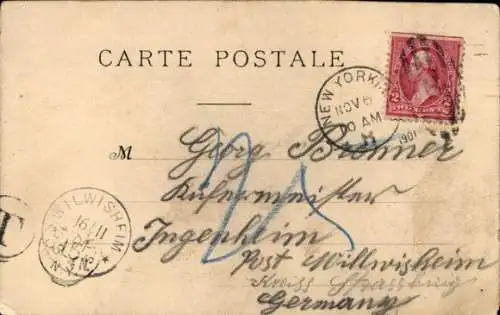 CARTE POSTALE
NEW YORK
NOV 6
10 AM
1901
2 2
M Georg Bronner
Küfermeister
Ingenheim
Post Willwisheim
Kreis Strassburg
Germany
WILWISHEIM
16/11
T